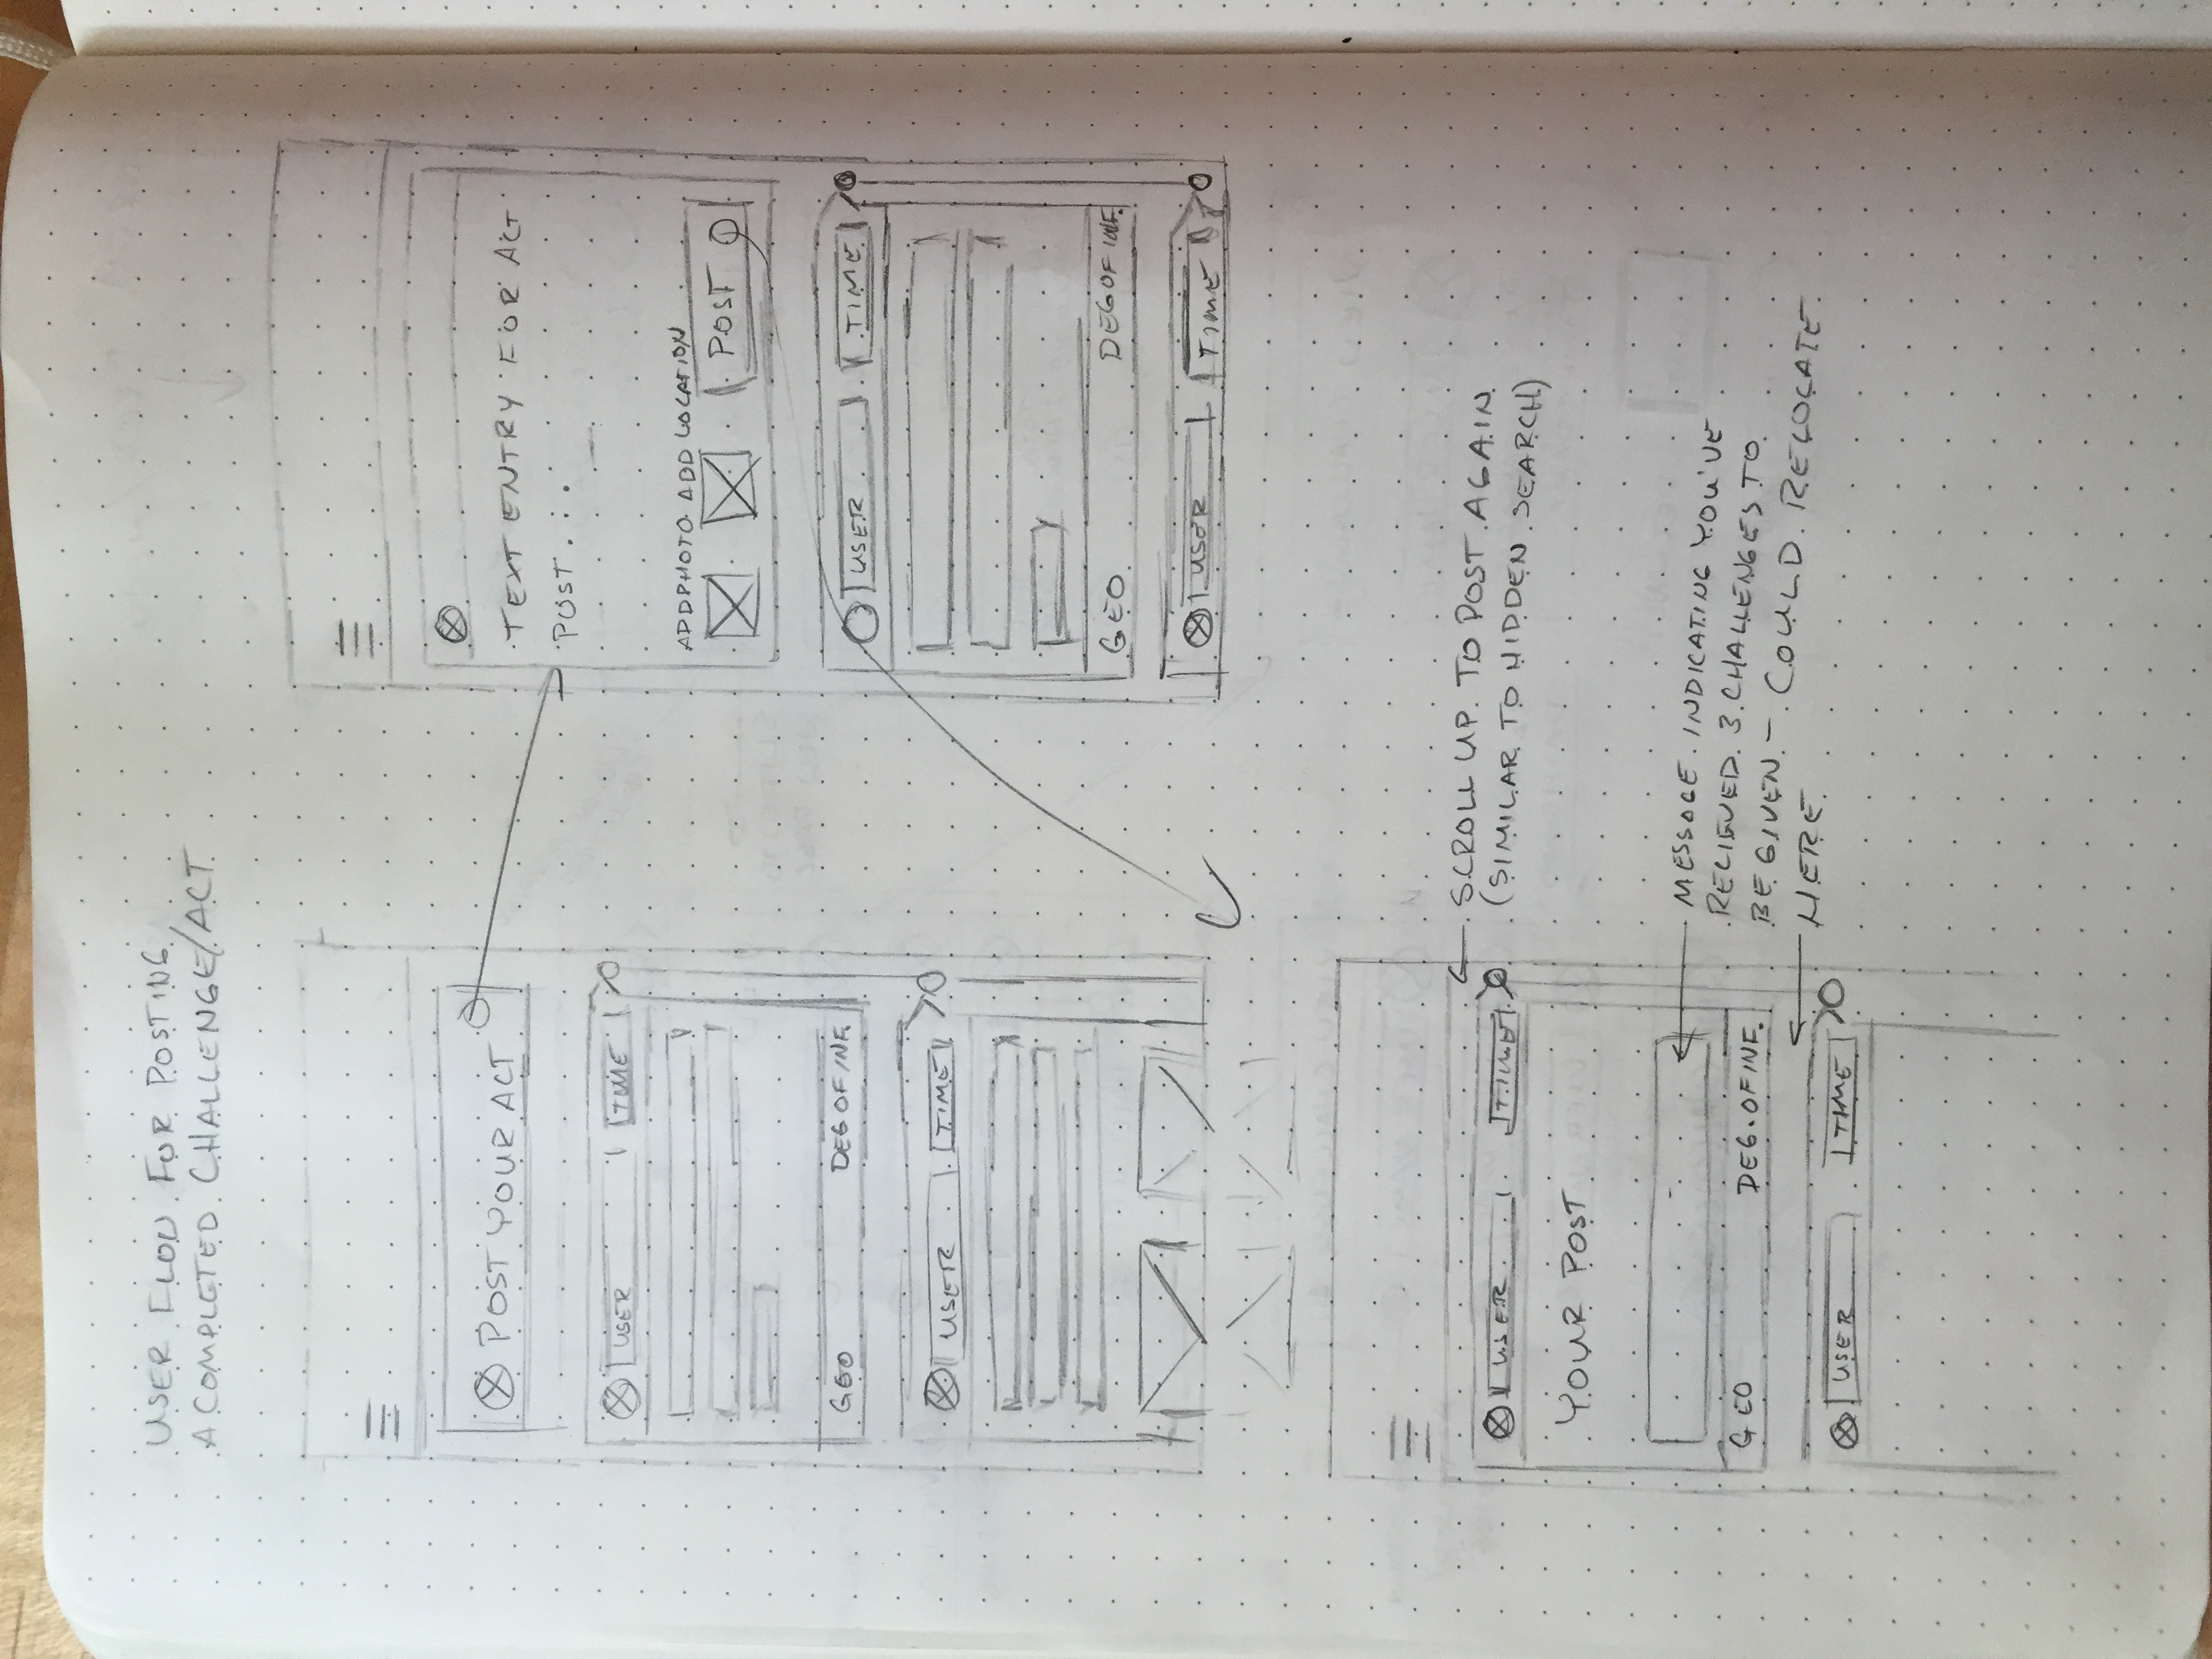 USER FLOW FOR POSTING
A COMPLETED CHALLENGE/ACT
POST YOUR ACT
USER TIME
GEO DEG OF INF.
USER TIME
TEXT ENTRY FOR ACT
POST...
ADD PHOTO ADD LOCATION
POST
USER TIME
GEO DEG OF INF.
USER TIME
USER TIME
YOUR POST
GEO DEG. OF INF.
USER TIME
SCROLL UP TO POST AGAIN
(SIMILAR TO HIDDEN SEARCH)
MESSAGE INDICATING YOU'VE
RECIEVED 3 CHALLENGES TO
BE GIVEN - COULD RELOCATE
HERE.